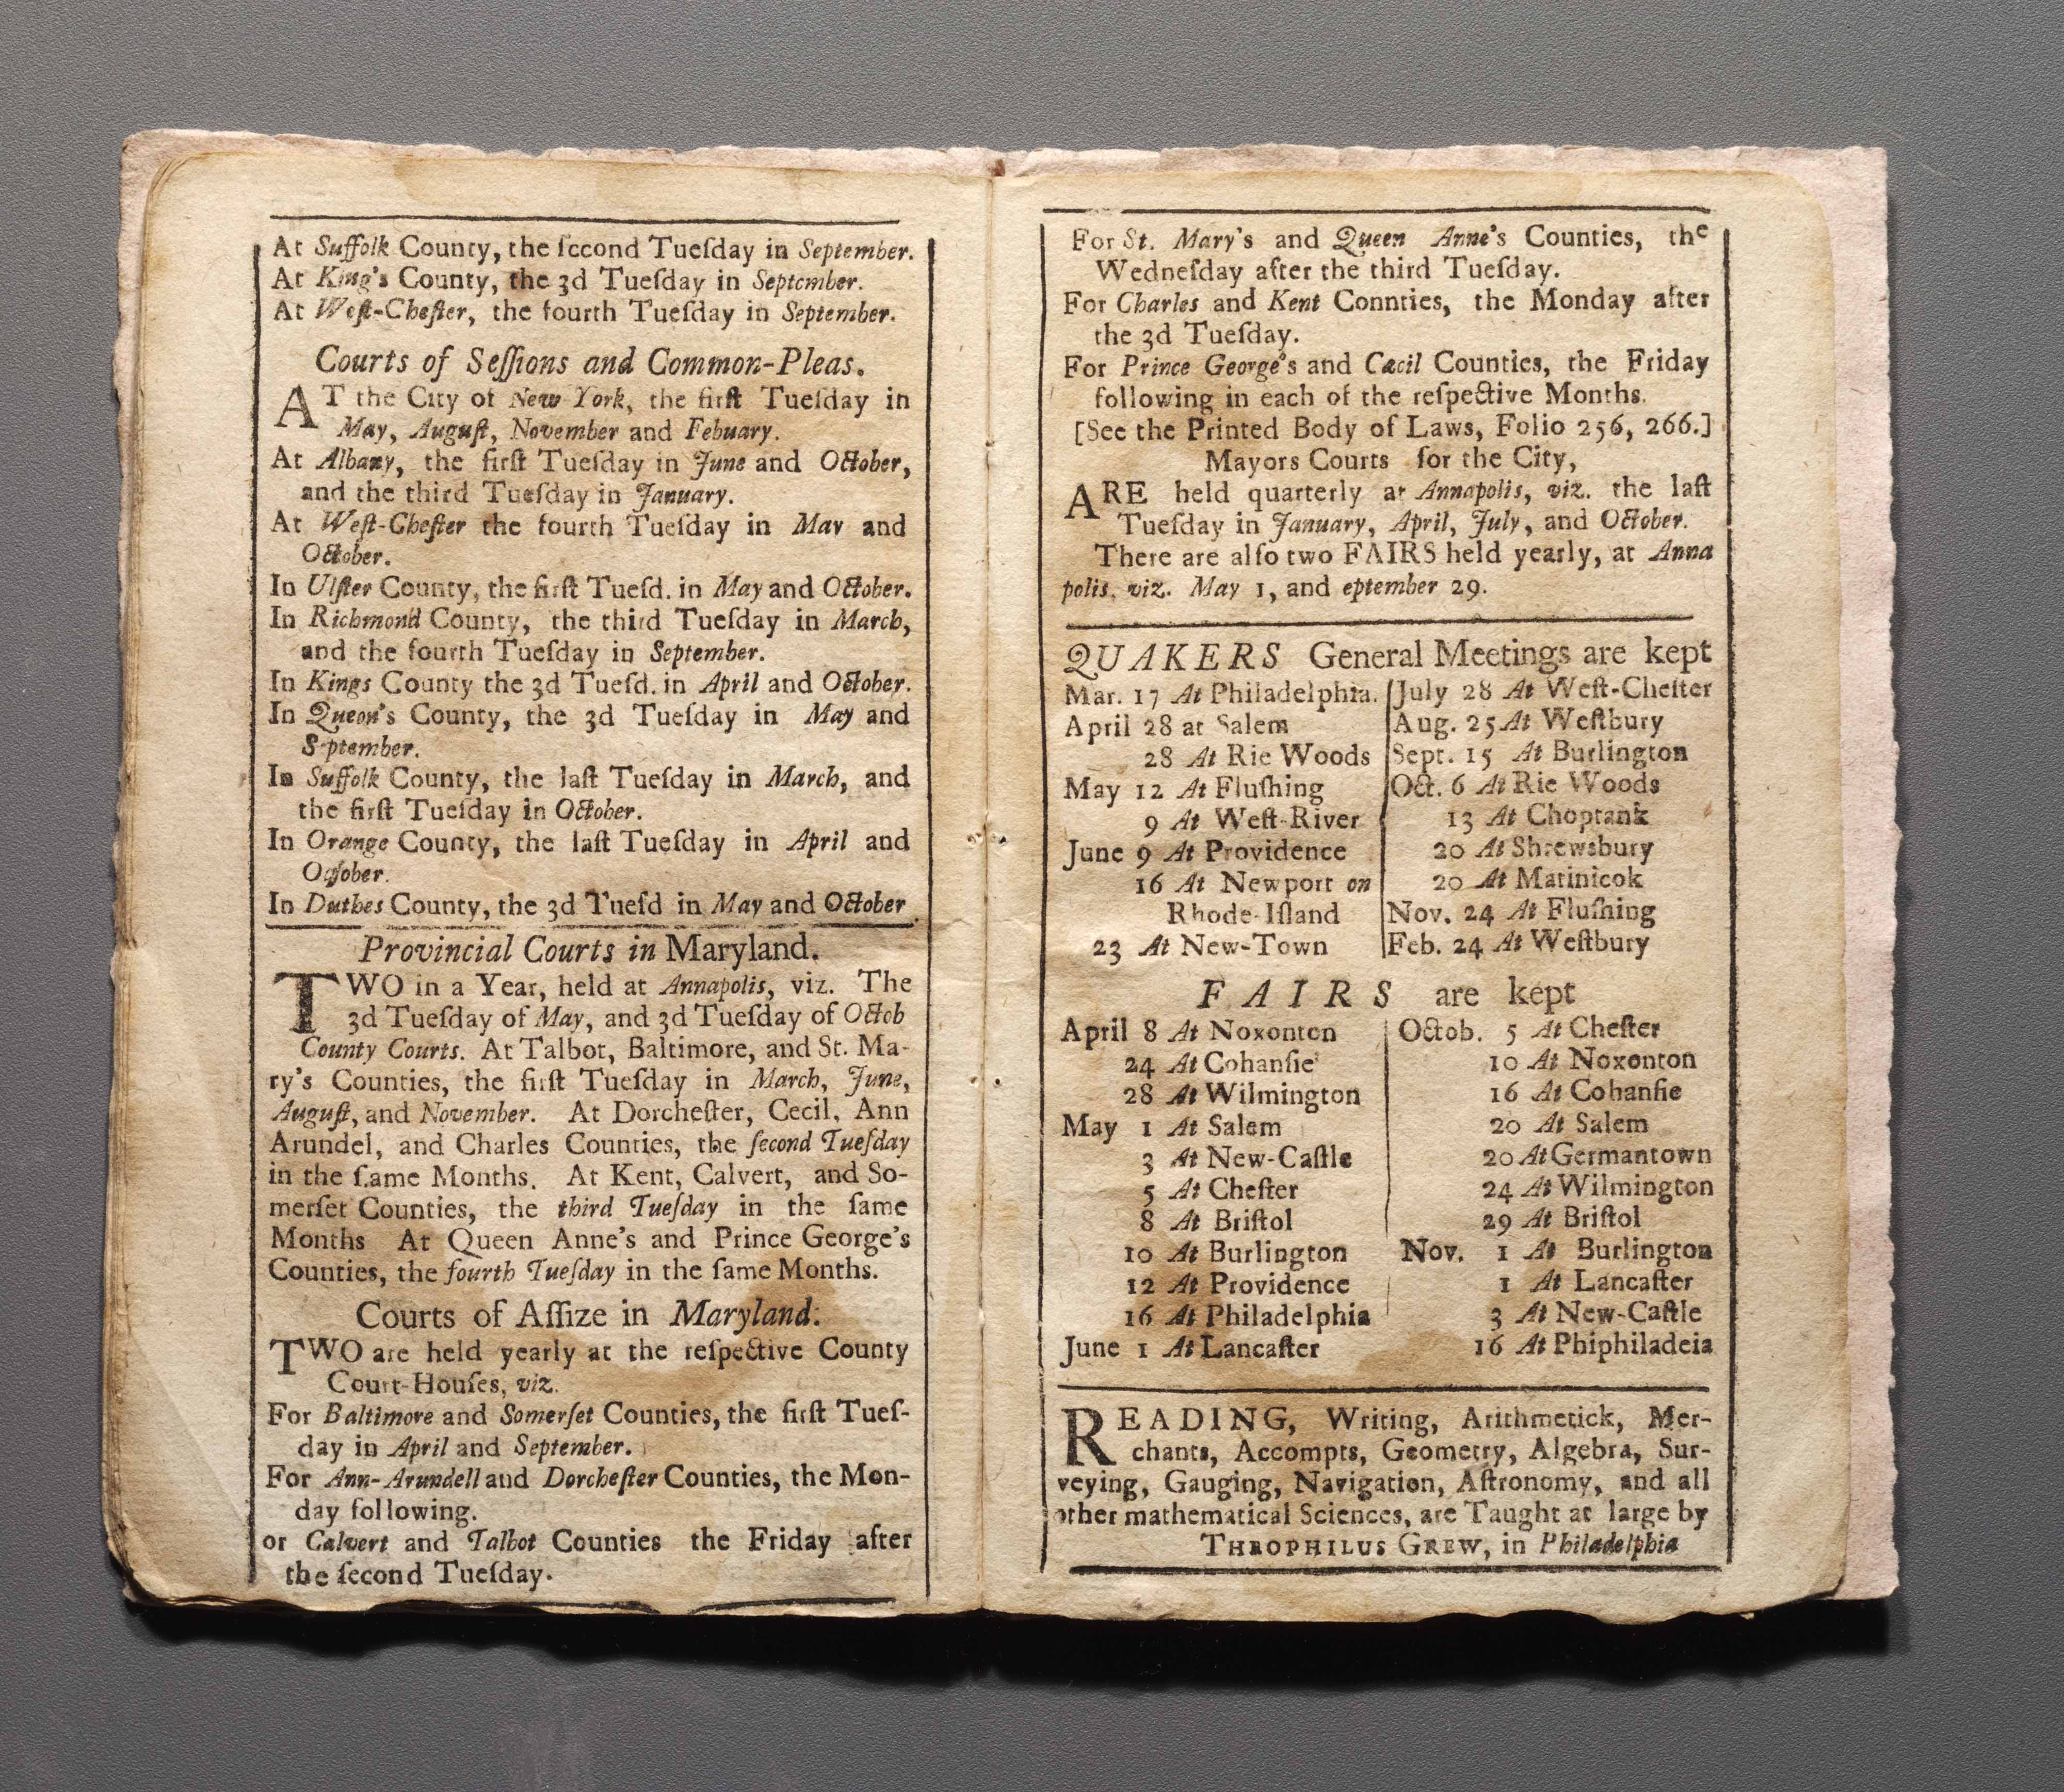 At Suffolk County, the ſecond Tueſday in September.
At King's County, the 3d Tueſday in September.
At Weſt-Cheſter, the fourth Tueſday in September.
Courts of Seſſions and Common-Pleas.
AT the City of New York, the firſt Tueſday in
May, Auguſt, November and Febuary.
At Albany, the firſt Tueſday in June and October,
and the third Tueſday in January.
At Weſt-Cheſter the fourth Tueſday in May and
October.
In Ulſter County, the firſt Tueſd. in May and October.
In Richmond County, the third Tueſday in March,
and the fourth Tueſday in September.
In Kings County the 3d Tueſd. in April and October.
In Queon's County, the 3d Tueſday in May and
S ptember.
In Suffolk County, the laſt Tueſday in March, and
the firſt Tueſday in October.
In Orange County, the laſt Tueſday in April and
October.
In Duthes County, the 3d Tueſd in May and October
Provincial Courts in Maryland.
TWO in a Year, held at Annapolis, viz. The
3d Tueſday of May, and 3d Tueſday of Octob
County Courts. At Talbot, Baltimore, and St. Ma-
ry's Counties, the firſt Tueſday in March, June,
Auguſt, and November. At Dorcheſter, Cecil, Ann
Arundel, and Charles Counties, the ſecond Tueſday
in the ſame Months. At Kent, Calvert, and So-
merſet Counties, the third Tueſday in the ſame
Months At Queen Anne's and Prince George's
Counties, the fourth Tueſday in the ſame Months.
Courts of Aſſize in Maryland:
TWO are held yearly at the reſpective County
Court-Houſes, viz.
For Baltimore and Somerſet Counties, the firſt Tueſ-
day in April and September.
For Ann-Arundell and Dorcheſter Counties, the Mon-
day following.
or Calvert and Talbot Counties the Friday after
the ſecond Tueſday.
For St. Mary's and Queen Anne's Counties, the
Wedneſday after the third Tueſday.
For Charles and Kent Connties, the Monday after
the 3d Tueſday.
For Prince George's and Cæcil Counties, the Friday
following in each of the reſpective Months.
[See the Printed Body of Laws, Folio 256, 266.]
Mayors Courts for the City,
ARE held quarterly at Annapolis, viz. the laſt
Tueſday in January, April, July, and October.
There are alſo two FAIRS held yearly, at Anna
polis, viz. May 1, and eptember 29.
QUAKERS General Meetings are kept
Mar. 17 At Philadelphia.
April 28 at Salem
28 At Rie Woods
May 12 At Fluſhing
9 At Weſt-River
June 9 At Providence
16 At Newport on
Rhode-Iſland
23 At New-Town
July 28 At Weſt-Cheſter
Aug. 25 At Weſtbury
Sept. 15 At Burlington
Oct. 6 At Rie Woods
13 At Choptank
20 At Shrewsbury
20 At Matinicok
Nov. 24 At Fluſhing
Feb. 24 At Weſtbury
FAIRS are kept
April 8 At Noxonton
24 At Cohanſie
28 At Wilmington
May 1 At Salem
3 At New-Caſtle
5 At Cheſter
8 At Briſtol
10 At Burlington
12 At Providence
16 At Philadelphia
June 1 At Lancaſter
Octob. 5 At Cheſter
10 At Noxonton
16 At Cohanſie
20 At Salem
20 At Germantown
24 At Wilmington
29 At Briſtol
Nov. 1 At Burlington
1 At Lancaſter
3 At New-Caſtle
16 At Phiphiladeia
READING, Writing, Arithmetick, Mer-
chants, Accompts, Geometry, Algebra, Sur-
veying, Gauging, Navigation, Aſtronomy, and all
other mathematical Sciences, are Taught at large by
THROPHILUS GREW, in Philadelphia